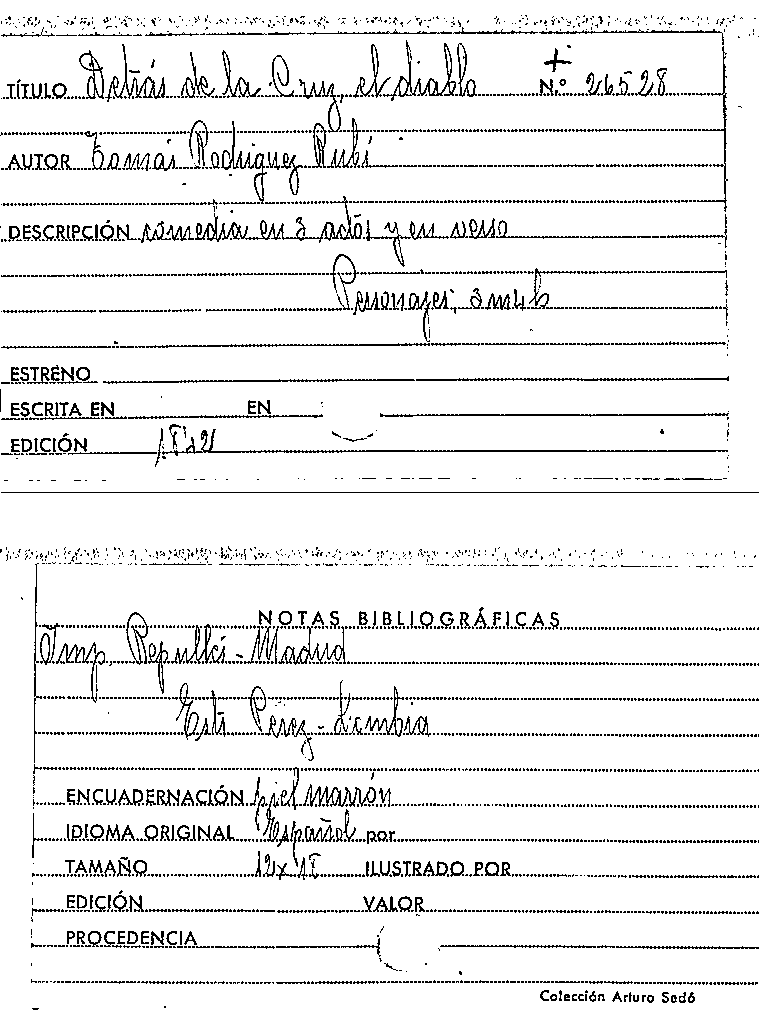 +
TÍTULO Detrás de la Cruz, el diablo N.º 26528
AUTOR Tomás Rodriguez Rubí
DESCRIPCIÓN comedia en 3 actos y en verso
Personajes; 3 m 4 h
ESTRENO
ESCRITA EN EN
EDICIÓN 1842
NOTAS BIBLIOGRÁFICAS
Imp. Repullés - Madrid
Pérez -
ENCUADERNACIÓN piel marrón
IDIOMA ORIGINAL Español por
TAMAÑO 12x18 ILUSTRADO POR
EDICIÓN VALOR
PROCEDENCIA
Colección Arturo Sedó